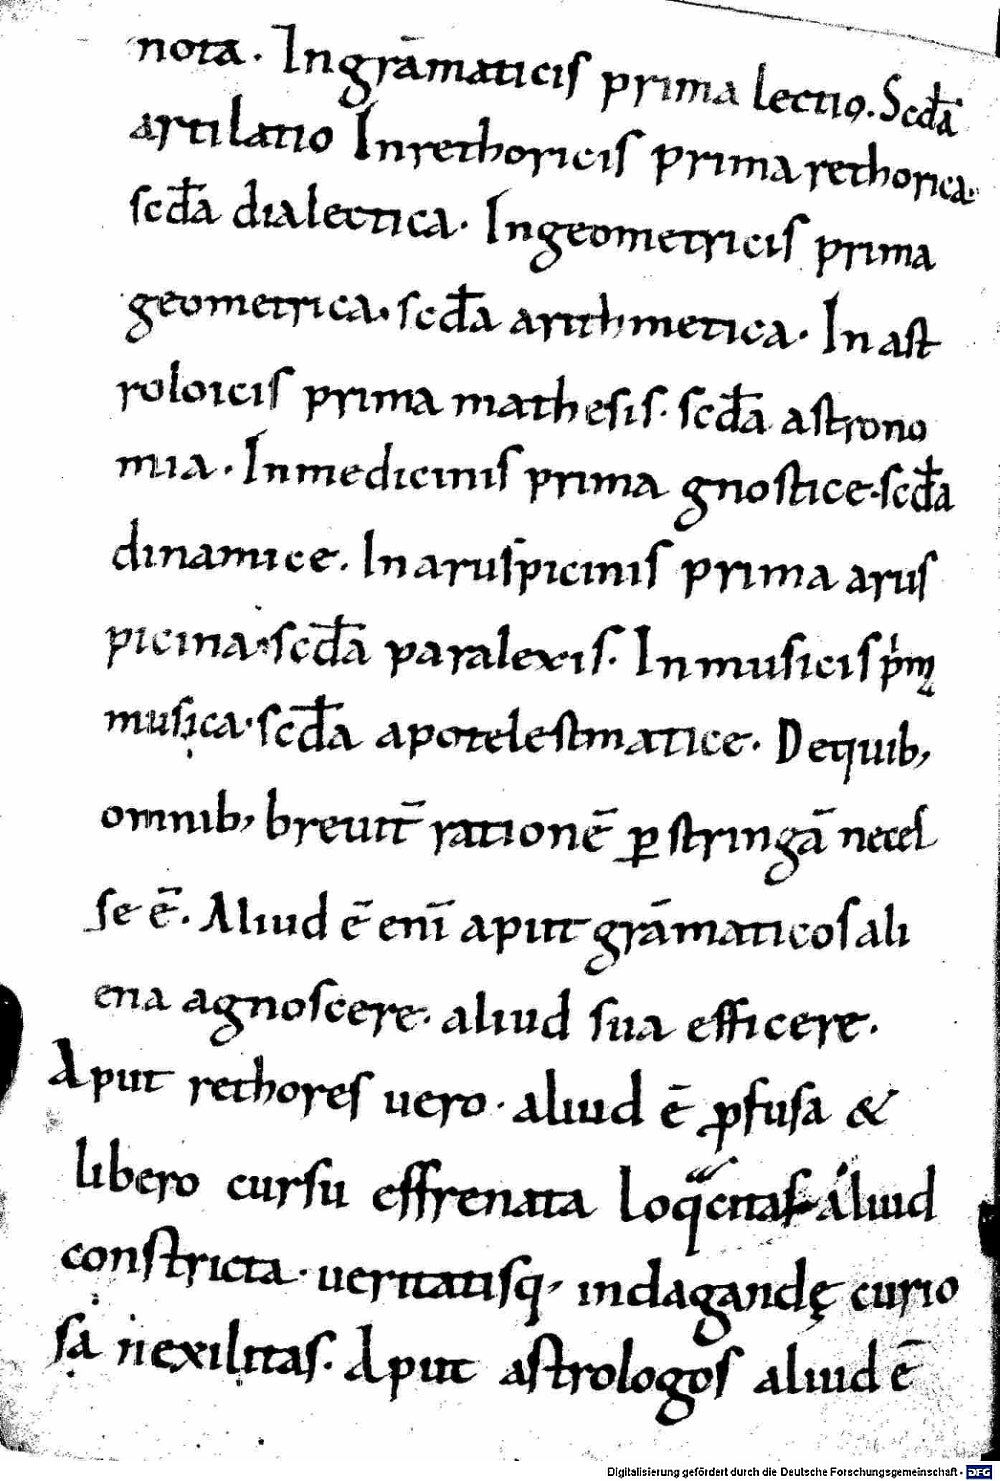 nota. Ingrāmaticiſ prima lectio. Scd̄a
artilatio Inrethoriciſ prima rethorica.
ſcd̄a dialectica. Ingeometriciſ prima
geometrica. ſcd̄a arithmetica. In aſt
roloiciſ prima matheſiſ. ſcd̄a aſtrono
mia. Inmediciniſ prima gnoſtice. ſcd̄a
dinamice. Inaruſpiciniſ prima aruſ
picina. ſcd̄a paralexiſ. Inmuſiciſ
muſica. ſcd̄a apoteleſtmatice. Dequib,
omnib, breuit̄ rationē ꝑſtringā neceſ
ſe ē. Aliud ē enī aput grāmaticoſ ali
ena agnoſcere. aliud ſua efficere.
Aput rethoreſ uero. aliud ē ꝓfuſa &
libero curſu effrenata aliud
conſtricta. ueritatiſq, indagandę curio
ſa nexilitaſ. Aput aſtrologoſ aliud ē
Digitalisierung gefördert durch die Deutsche Forschungsgemeinschaft - DFG